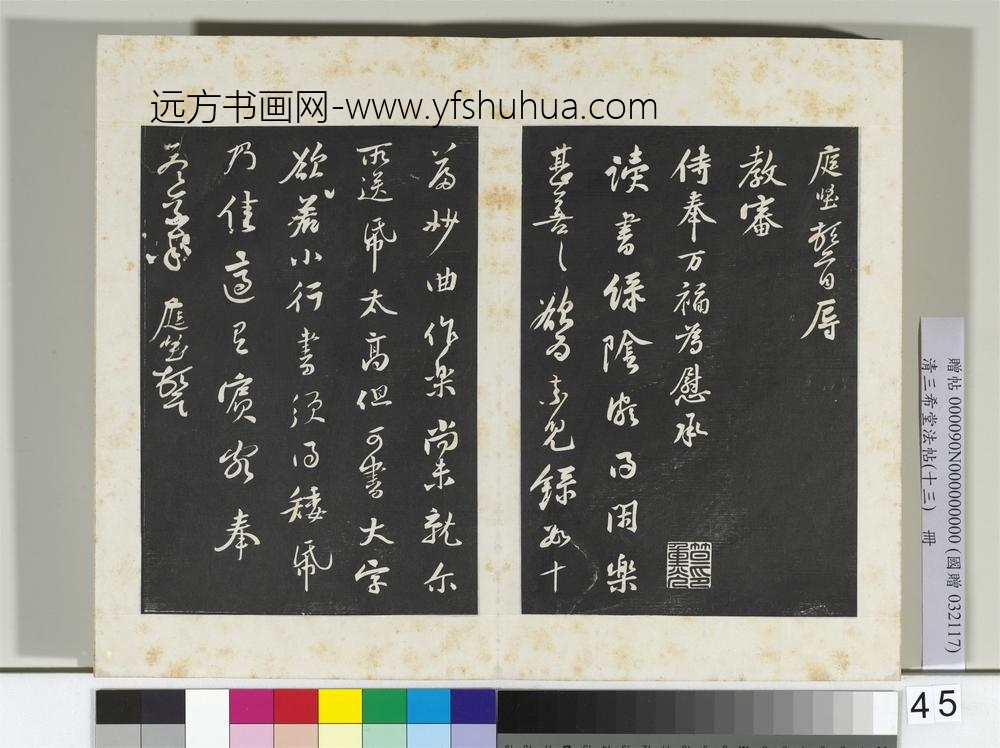 远方书画网-www.yfshuhua.com
庭堅頓首辱
教審
侍奉万福為慰承
讀書綠陰頗得閑樂
甚善之欲為索兒錄數十
篇妙曲作樂尚未就尔
所送紙太高但可書大字
欲若小行書須得矮紙
乃佳適有賓客奉
答草率 庭堅頓首
贈帖 000090N000000000 (國贈 032117)
清三希堂法帖(十三) 冊
45